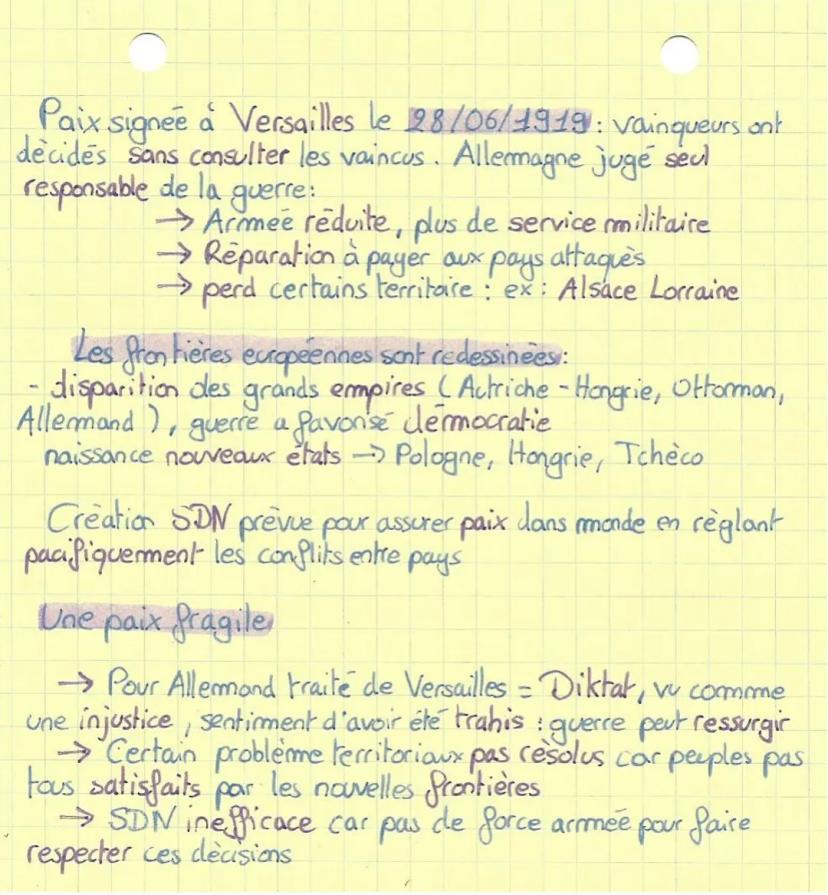 Paix signée à Versailles le 28/06/1919 : vainqueurs ont
décidés sans consulter les vaincus. Allemagne jugé seul
responsable de la guerre :
→ Armée réduite, plus de service militaire
→ Réparation à payer aux pays attaqués
→ perd certains territoire : ex : Alsace Lorraine
Les frontières européennes sont redessinées :
- disparition des grands empires (Autriche - Hongrie, Ottoman,
Allemand), guerre a favorisé démocratie
naissance nouveaux états → Pologne, Hongrie, Tchéco
Création SDN prévue pour assurer paix dans monde en réglant
pacifiquement les conflits entre pays
Une paix fragile
→ Pour Allemand traité de Versailles = Diktat, vu comme
une injustice, sentiment d'avoir été trahis : guerre peut ressurgir
→ Certain problème territoriaux pas résolus car peuples pas
tous satisfaits par les nouvelles frontières
→ SDN inefficace car pas de force armée pour faire
respecter ces décisions